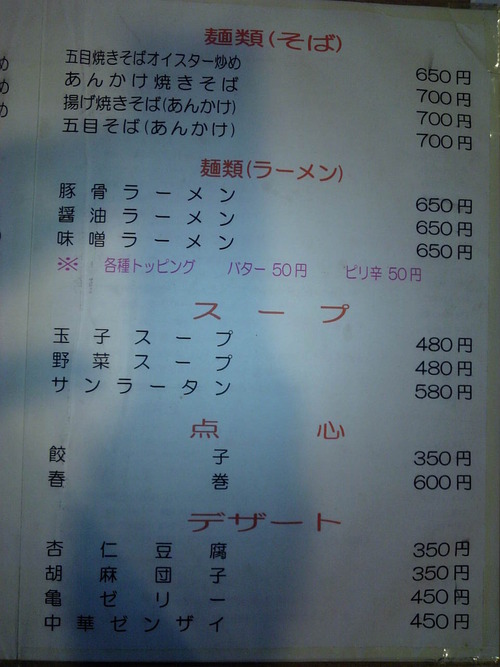 麺類(そば)
五目焼きそばオイスター炒め 650円
あんかけ焼きそば 700円
揚げ焼きそば(あんかけ) 700円
五目そば(あんかけ) 700円
麺類(ラーメン)
豚骨ラーメン 650円
醤油ラーメン 650円
味噌ラーメン 650円
※ 各種トッピング バター 50円 ピリ辛 50円
スープ
玉子スープ 480円
野菜スープ 480円
サンラータン 580円
点心
餃子 350円
春巻 600円
デザート
杏仁豆腐 350円
胡麻団子 350円
亀ゼリー 450円
中華ゼンザイ 450円